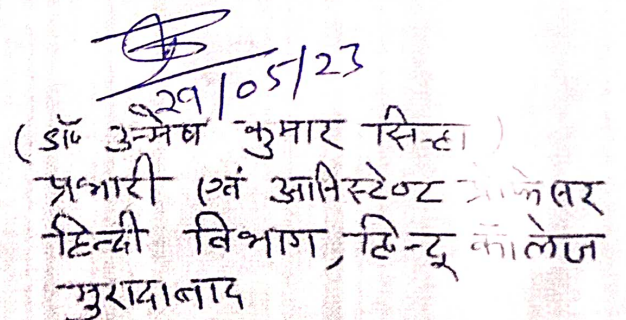 29/05/23
(डॉ० उन्मेष कुमार सिन्हा)
प्रभारी एवं आसिस्टेण्ट प्रोफेसर
हिन्दी विभाग, हिन्दू कॉलेज
मुरादाबाद